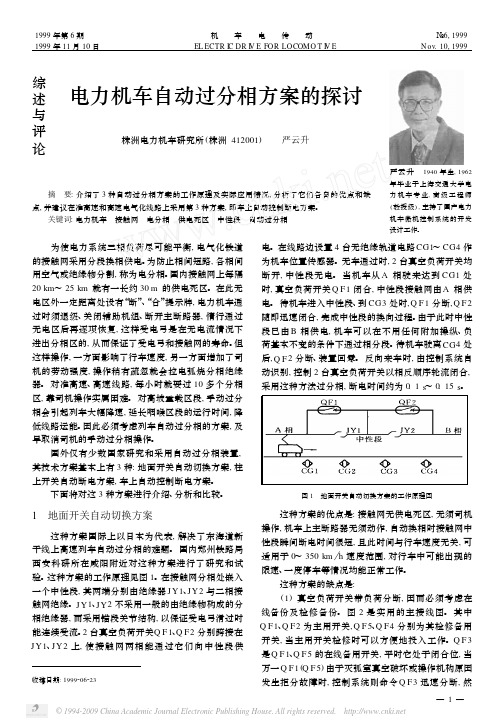 1999 年第 6 期
机 车 电 传 动
№6, 1999
1999 年 11 月 10 日
ELECTRIC DRIVE FOR LOCOMOTIVE
Nov. 10, 1999
综述与评论
电力机车自动过分相方案的探讨
株洲电力机车研究所(株洲 412001) 严云升
严云升 1940 年生, 1962
年毕业于上海交通大学电
力机车专业, 高级工程师
(教授级), 主持了国产电力
机车微机控制系统的开发
设计工作.
摘 要: 介绍了 3 种自动过分相方案的工作原理及实际应用情况, 分析了它们各自的优点和缺
点, 并建议在准高速和高速电气化线路上采用第 3 种方案, 即车上自动控制断电方案.
关键词: 电力机车 接触网 电分相 供电死区 中性段 自动过分相
为使电力系统三相负荷尽可能平衡, 电气化铁道
的接触网采用分段换相供电。为防止相间短路, 各相间
用空气或绝缘物分割, 称为电分相。国内接触网上每隔
20 km～ 25 km 就有一长约 30 m 的供电死区。在此无
电区外一定距离处设有“断”、“合”提示牌, 电力机车通
过时须退级、关闭辅助机组、断开主断路器, 惰行通过
无电区后再逐项恢复, 这样受电弓是在无电流情况下
进出分相区的, 从而保证了受电弓和接触网的寿命。但
这样操作, 一方面影响了行车速度, 另一方面增加了司
机的劳动强度, 操作稍有疏忽就会拉电弧烧分相绝缘
器。对准高速、高速线路, 每小时就要过 10 多个分相
区, 靠司机操作实属困难。对高坡重载区段, 手动过分
相会引起列车大幅降速, 延长咽喉区段的运行时间, 降
低线路运能。因此必须考虑列车自动过分相的方案, 及
早取消司机的手动过分相操作。
国外仅有少数国家研究和采用自动过分相装置,
其技术方案基本上有 3 种: 地面开关自动切换方案, 柱
上开关自动断电方案, 车上自动控制断电方案。
下面将对这 3 种方案进行介绍、分析和比较。
1 地面开关自动切换方案
这种方案国际上以日本为代表, 解决了东海道新
干线上高速列车自动过分相的难题。国内郑州铁路局
西安科研所在咸阳附近对这种方案进行了研究和试
验。这种方案的工作原理见图 1。在接触网分相处嵌入
一个中性段, 其两端分别由绝缘器 JY1、JY2 与二相接
触网绝缘。JY1、JY2 不采用一般的由绝缘物构成的分
相绝缘器, 而采用锚段关节结构, 以保证受电弓滑过时
能连续受流。2 台真空负荷开关QF1、QF2 分别跨接在
JY1、JY2 上, 使接触网两相能通过它们向中性段供
收稿日期: 1999-06-23
电。在线路边设置 4 台无绝缘轨道电路 CG1～ CG4 作
为机车位置传感器。无车通过时, 2 台真空负荷开关均
断开, 中性段无电。当机车从 A 相驶来达到 CG1 处
时, 真空负荷开关 QF1 闭合, 中性段接触网由 A 相供
电。待机车进入中性段, 到 CG3 处时, QF1 分断, QF2
随即迅速闭合, 完成中性段的换相过程。由于此时中性
段已由 B 相供电, 机车可以在不用任何附加操纵、负
荷基本不变的条件下通过相分段。待机车驶离CG4 处
后, QF2 分断, 装置回零。反向来车时, 由控制系统自
动识别, 控制 2 台真空负荷开关以相反顺序轮流闭合,
采用这种方法过分相, 断电时间约为 0. 1 s～ 0. 15 s。
QF1 QF2
A 相 JY1 JY2 B 相
中性段
CG1 CG2 CG3 CG4
图 1 地面开关自动切换方案的工作原理图
这种方案的优点是: 接触网无供电死区, 无须司机
操作, 机车上主断路器无须动作, 自动换相时接触网中
性段瞬间断电时间很短, 且此时间与行车速度无关, 可
适用于 0～ 350 km /h 速度范围, 对行车中可能出现的
限速、一度停车等情况均能正常工作。
这种方案的缺点是:
(1) 真空负荷开关带负荷分断, 因而必须考虑在
线备份及检修备份。图 2 是实用的主接线图。其中
QF1、QF2 为主用开关, QF5、QF4 分别为其检修备用
开关, 当主用开关检修时可以方便地投入工作。QF3
是 QF1、QF5 的在线备用开关, 平时它处于闭合位, 当
万一 QF1 (QF5) 由于灭弧室真空破坏或操作机构原因
发生拒分故障时, 控制系统则命令 QF3 迅速分断, 然
— 1 —
© 1994-2009 China Academic Journal Electronic Publishing House. All rights reserved. http://www.cnki.net